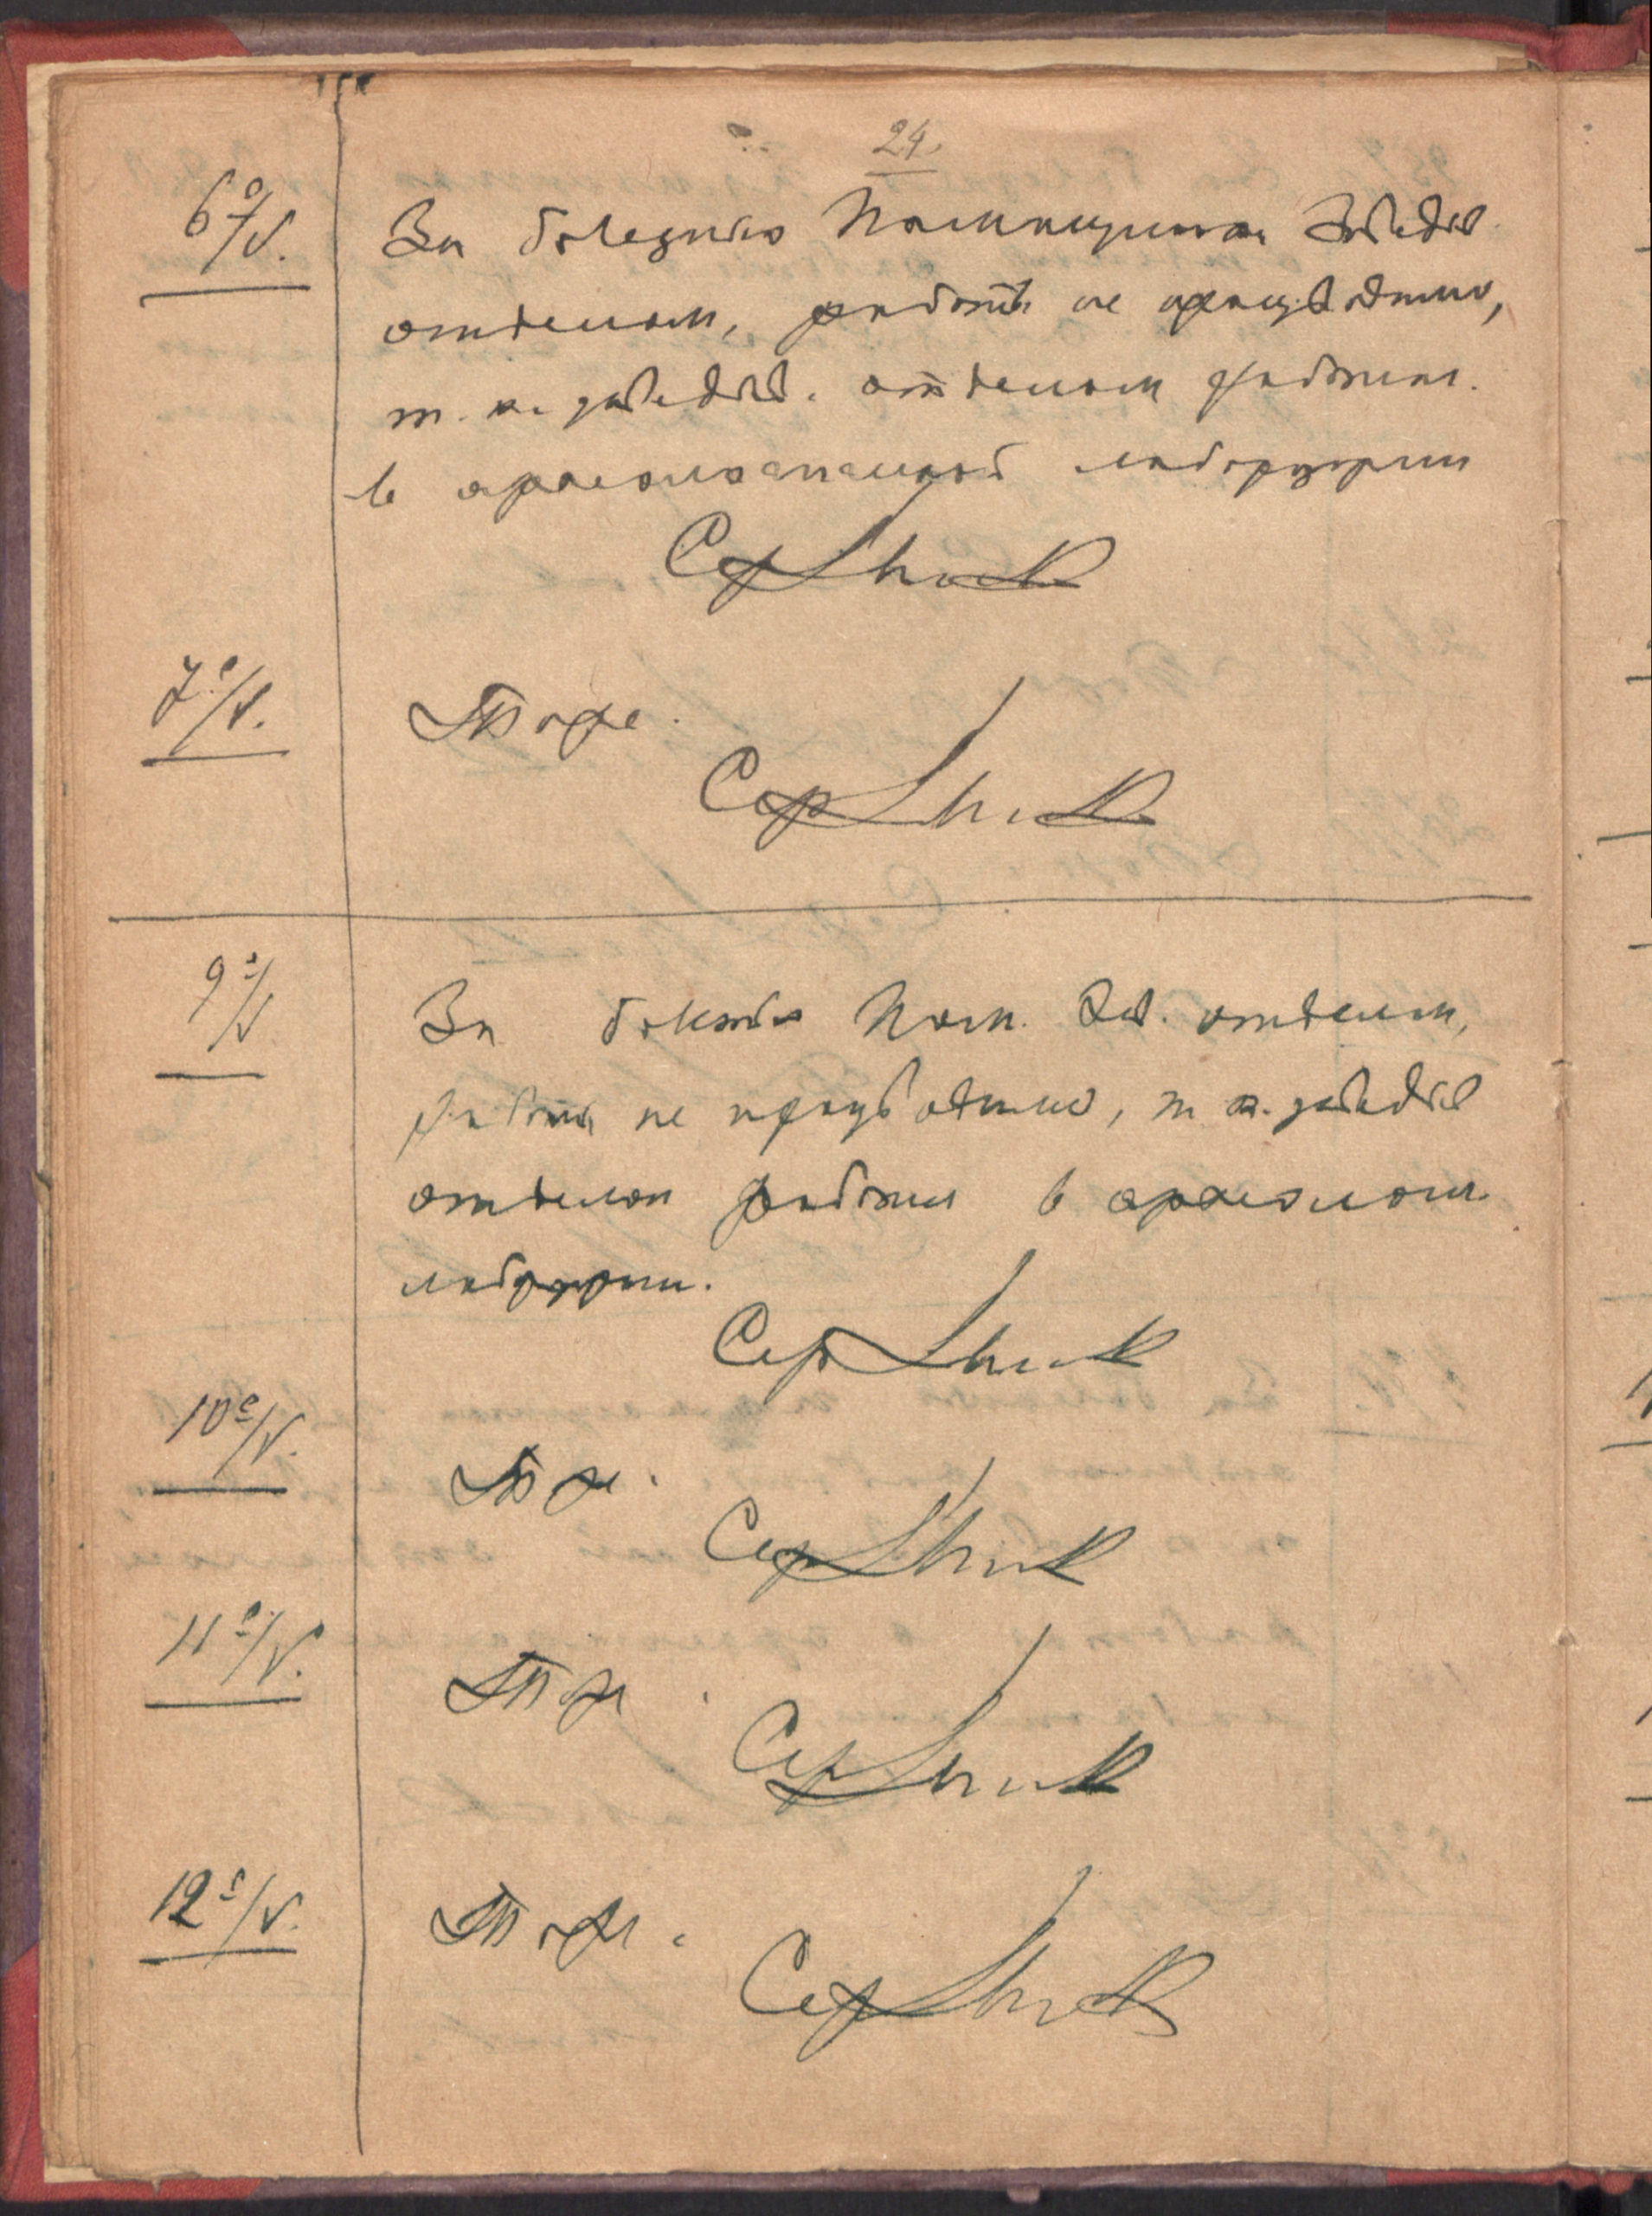 24.
6го/V. За болезнью Помощника Заведыв.
отделом, работы не производились,
т. к. заведыв. отделом работал
в археологической лаборатории
7го/V. Тоже.
9го/V За болезнью Пом. Зав. отделом,
работы не производились, т. к. заведыв
отделом работал в археологич.
лаборатории.
10го/V. Тоже.
11го/V. Тоже.
12го/V. Тоже.